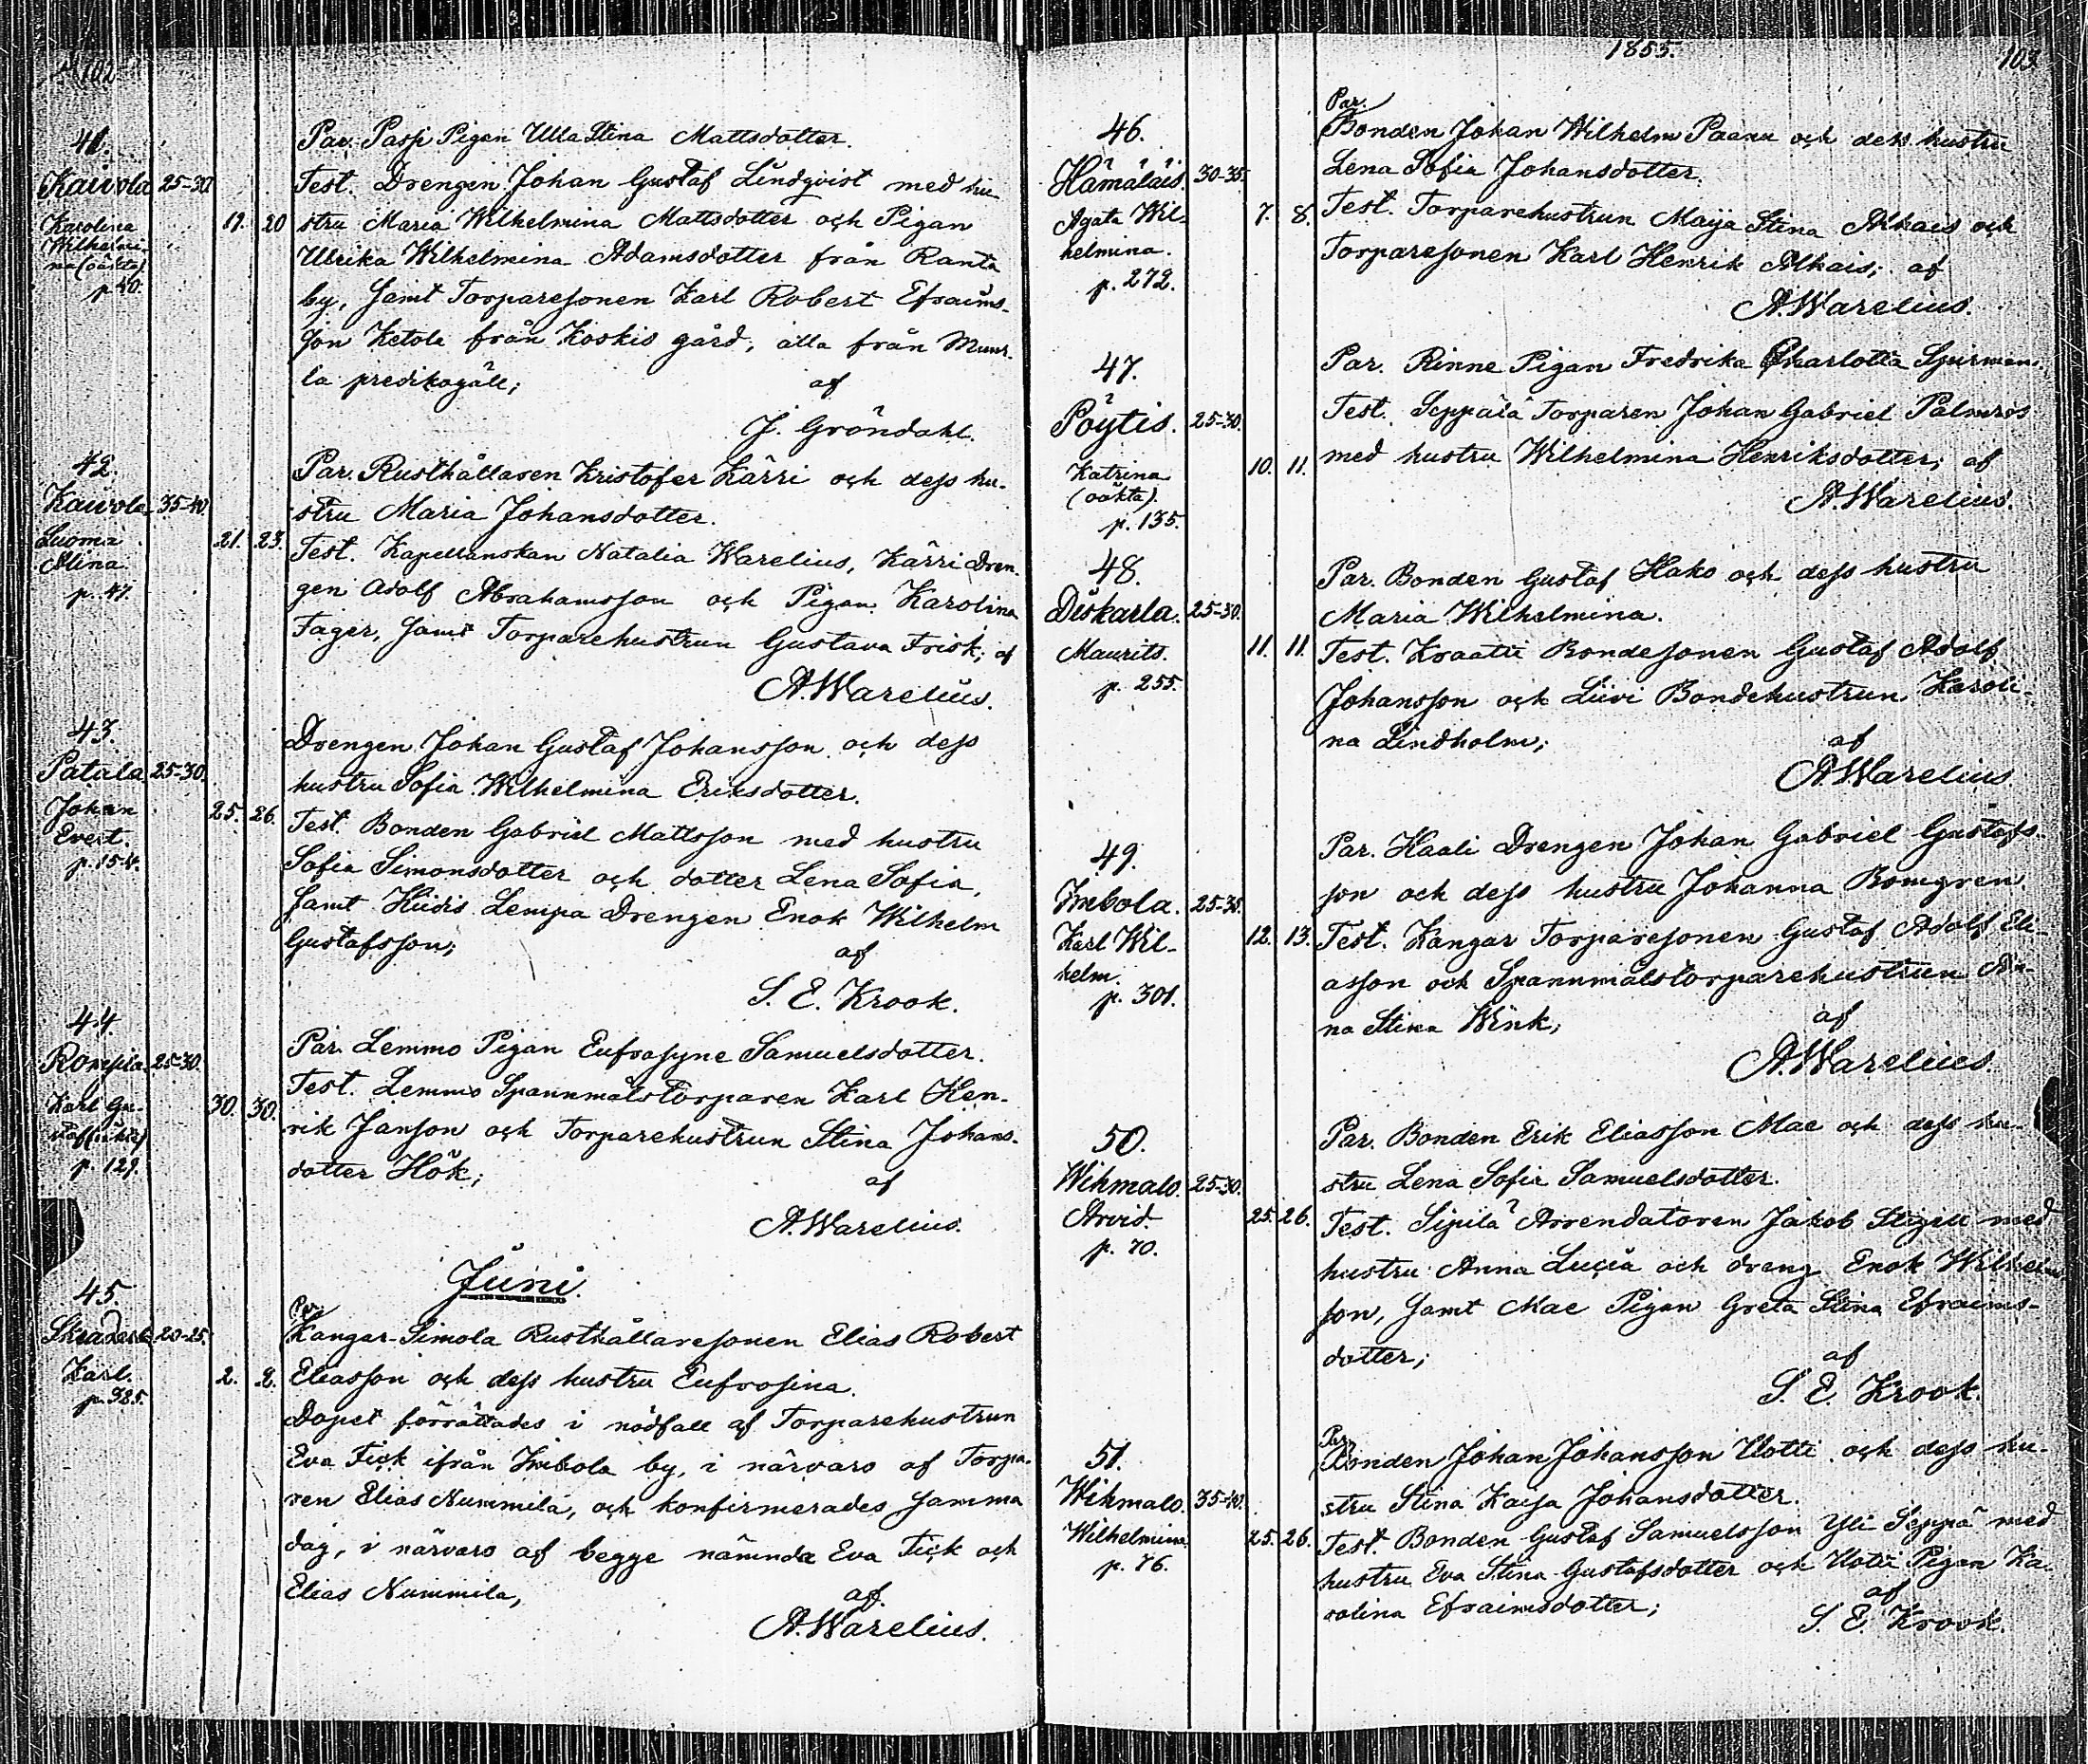 102
41.
Kaivola 25-30
Karolina
Wilhelmi-
na (oäkta)
p. 40.
19. 20
Par. Pasji Pigan Ulla Stina Mattsdotter.
Test. Drengen Johan Gustaf Lindqvist med hu-
stru Maria Wilhelmina Mattsdotter och Pigan
Ulrika Wilhelmina Adamsdotter från Ranta
by, samt Torparesonen Karl Robert Efraims-
son Ketola från Koskis gård, alla från Muur-
la predikogäll;
af
J. Gröndahl.
42.
Kaivola 35-40
Luoma
Stina.
p. 47.
21. 23.
Par. Rusthållaren Kristofer Kärri och dess hu-
stru Maria Johansdotter.
Test. Kapellanskan Natalia Warelius, Kärri Dren-
gen Adolf Abrahamsson och Pigan Karolina
Fager, samt Torparehustrun Gustava Frisk; af
A. Warelius.
43.
Patala 25-30.
Johan
Evert.
p. 154.
25. 26.
Drengen Johan Gustaf Johansson och dess
hustru Sofia Wilhelmina Eriksdotter.
Test. Bonden Gabriel Mattsson med hustru
Sofia Simonsdotter och dotter Lena Sofia,
samt Hiidis Lempa Drengen Enok Wilhelm
Gustafsson;
af
S. E. Krook.
44.
Rompila 25-30.
Karl Gu-
staf (oäkta)
p. 129.
30. 30.
Par. Lemmo Pigan Eufrosyne Samuelsdotter.
Test. Lemmo Spannmålstorparen Karl Hen-
rik Janson och Torparehustrun Stina Johans-
dotter Hök;
af
A. Warelius.
Juni.
45.
20-25.
Karl.
p. 385.
2. 2.
Par.
Kangar-Simola Rusthållaresonen Elias Robert
Eliasson och dess hustru Eufrosina.
Dopet förrättades i nödfall af Torparehustrun
Eva Fick ifrån Imbola by, i närvaro af Torpa-
ren Elias Nummila, och konfirmerades samma
dag, i närvaro af begge nämnda Eva Fick och
Elias Nummila,
af
A. Warelius.
1855.
103
46.
Hämäläis. 30-35.
Agata Wil-
helmina.
p. 272.
7. 8.
Par.
Bonden Johan Wilhelm Paavu och dess hustru
Lena Sofia Johansdotter.
Test. Torparehustrun Maija Stina Alhais och
Torparesonen Karl Henrik Alhais; af
A. Warelius.
47.
Pöytis. 25-30.
Katrina
(oäkta).
p. 135.
10. 11.
Par. Rinne Pigan Fredrika Charlotta Spirman.
Test. Seppälä Torparen Johan Gabriel Palmros
med hustru Wilhelmina Henriksdotter; af
A. Warelius.
48.
Diskarla. 25-30.
Maurits.
p. 255.
11. 11.
Par. Bonden Gustaf Hako och dess hustru
Maria Wilhelmina.
Test. Kraatti Bondesonen Gustaf Adolf
Johansson och Liivi Bondehustrun Karoli-
na Lindholm;
af
A. Warelius.
49.
Imbola. 25-35.
Karl Wil-
helm.
p. 301.
12. 13.
Par. Haali Drengen Johan Gabriel Gustafs-
son och dess hustru Johanna Bomgren
Test. Kangar Torparesonen Gustaf Adolf Eli-
asson och Spannmålstorparehustrun An-
na Stina Wink;
af
A. Warelius.
50.
Wihmalo. 25-30.
Arvid.
p. 70.
25. 26.
Par. Bonden Erik Eliasson Mae och dess hu-
stru Lena Sofia Samuelsdotter.
Test. Sipilä Arrendatoren Jakob Stigell med
hustru Anna Lucia och dreng Enok Wilhelms-
son, samt Mae Pigan Greta Stina Efraims-
dotter;
af
S. E. Krook.
51.
Wihmalo. 35-40.
Wilhelmina
p. 76.
25. 26.
Par.
Bonden Johan Johansson Uotti och dess hu-
stru Stina Kaisa Johansdotter.
Test. Bonden Gustaf Samuelsson Yli Seppä med
hustru Eva Stina Gustafsdotter och Uotti Pigan Ka-
rolina Efraimsdotter;
af
S. E. Krook.